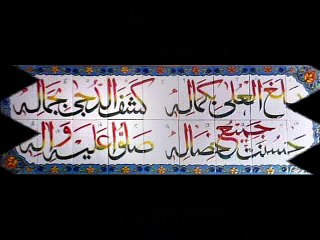 بلغ العلى بكماله كشف الدجى بجماله
حسنت جميع خصاله صلوا عليه وآله